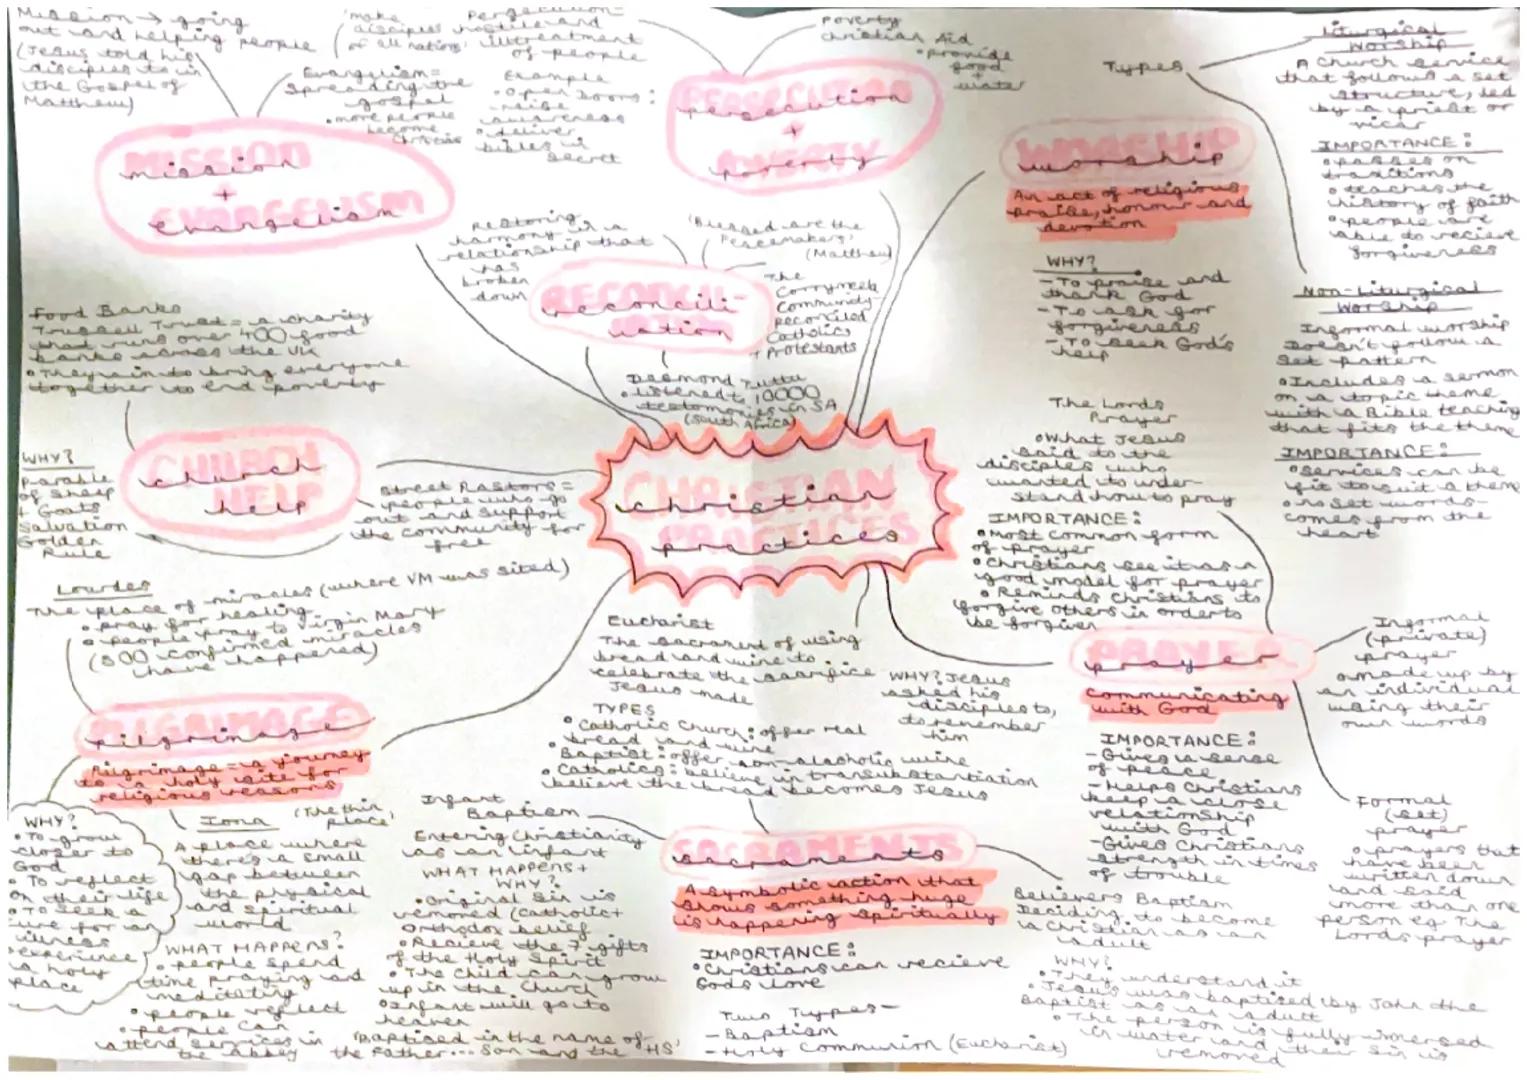 Mission → going
out and helping people
(Jesus told his
disciples to in
the Gospel of
Matthew)
'make
disciples
of all nations'
Evangelism =
Spreading the
gospel
• more people
become
Christian
MISSION
mission
+
EVANGELISM
evangelism
Persecution -
hostile and
illtreatment
of people
Example
• Open Doors:
raise
awareness
• deliver
bibles in
secret
Poverty
Christian Aid
• provide
food
+
water
PERSECUTION
persecution
+
POVERTY
poverty
Restoring
harmony in a
relationship that
has
broken
down
'Blessed are the
Peacemakers'
(Matthew)
The
Corrymeela
Community -
reconciled
Catholics
+ Protestants
RECONCILI-
reconcili
ation
Desmond Tuttu
• listened to 10000
testomonies in SA
(South Africa)
WORSHIP
worship
An act of religious
praise, honour and
devotion
WHY?
- To praise and
thank God
- To ask for
forgiveness
- To seek God's
help
Types
Liturgical
Worship
A Church service
that follows a set
structure, led
by a priest or
vicar
IMPORTANCE:
• passes on
traditions
• teaches the
history of faith
• people are
able to recieve
forgiveness
Non-Liturgical
Worship
Informal worship
Doesn't follow a
set pattern
• Includes a sermon
on a topic theme
with a Bible teaching
that fits the theme
IMPORTANCE:
• services can be
fit to suit a theme
• no set words -
comes from the
heart
Food Banks
Trussell Trust = a charity
that runs over 400 food
banks across the UK
• They aim to bring everyone
together to end poverty
CHURCH
church
HELP
help
WHY?
Parable
of Sheep
+ Goats
Salvation
Golden
Rule
Street Pastors =
people who go
out and support
the community for
free
CHRISTIAN
christian
PRACTICES
practices
The Lords
Prayer
• What Jesus
said to the
disciples who
wanted to under-
stand how to pray
IMPORTANCE:
• Most common form
of prayer
• Christians see it as a
good model for prayer
• Reminds Christians to
forgive others in order to
be forgiven
PRAYER
prayer
Communicating
with God
IMPORTANCE:
- Gives a sense
of peace
- Helps Christians
keep a close
relationship
with God
- Gives Christians
strength in times
of trouble
Informal
(private)
prayer
• made up by
an individual
using their
own words
Formal
(set)
prayer
• prayers that
have been
written down
and said
more than one
person eg. The
Lords prayer
Lourdes
The place of miracles (where VM was sited)
• pray for healing
• people pray to Virgin Mary
(500 confirmed miracles
have happened)
PILGRIMAGE
pilgrimage
Pilgrimage = a journey
to a holy site for
religious reasons
WHY?
• To grow
closer to
God
• To reflect
on their life
• To seek a
cure for an
illness
experience
a holy
place
Iona
(The thin
place)
A place where
theres a small
gap between
the physical
and spiritual
world
WHAT HAPPENS?
• people spend
time praying and
meditating
• people reflect
• people can
attend services in
the abbey
Eucharist
The sacrament of using
bread and wine to
celebrate the sacrifice
Jesus made
WHY? Jesus
asked his
disciples to,
to remember
him
TYPES
• Catholic Church: offer real
bread and wine
• Baptist: offer non-alcoholic wine
• Catholics: believe in transubstantiation
believe the bread becomes Jesus
SACRAMENTS
sacraments
A symbolic action that
shows something huge
is happening spiritually
IMPORTANCE:
• Christians can recieve
Gods love
Two Types -
- Baptism
- Holy Communion (Eucharist)
Infant
Baptism
Entering Christianity
as an infant
WHAT HAPPENS +
WHY?
• Original Sin is
removed (Catholic +
Orthodox belief
• Recieve the 7 gifts
of the Holy Spirit
• The child can grow
up in the Church
• Infant will go to
heaven
'Baptised in the name of
the Father... Son and the HS'
Believers Baptism
Deciding to become
a Christian as an
adult
WHY?
• They understand it
• Jesus was baptised by John the
Baptist as an adult
• The person is fully immersed
in water and their sin is
removed